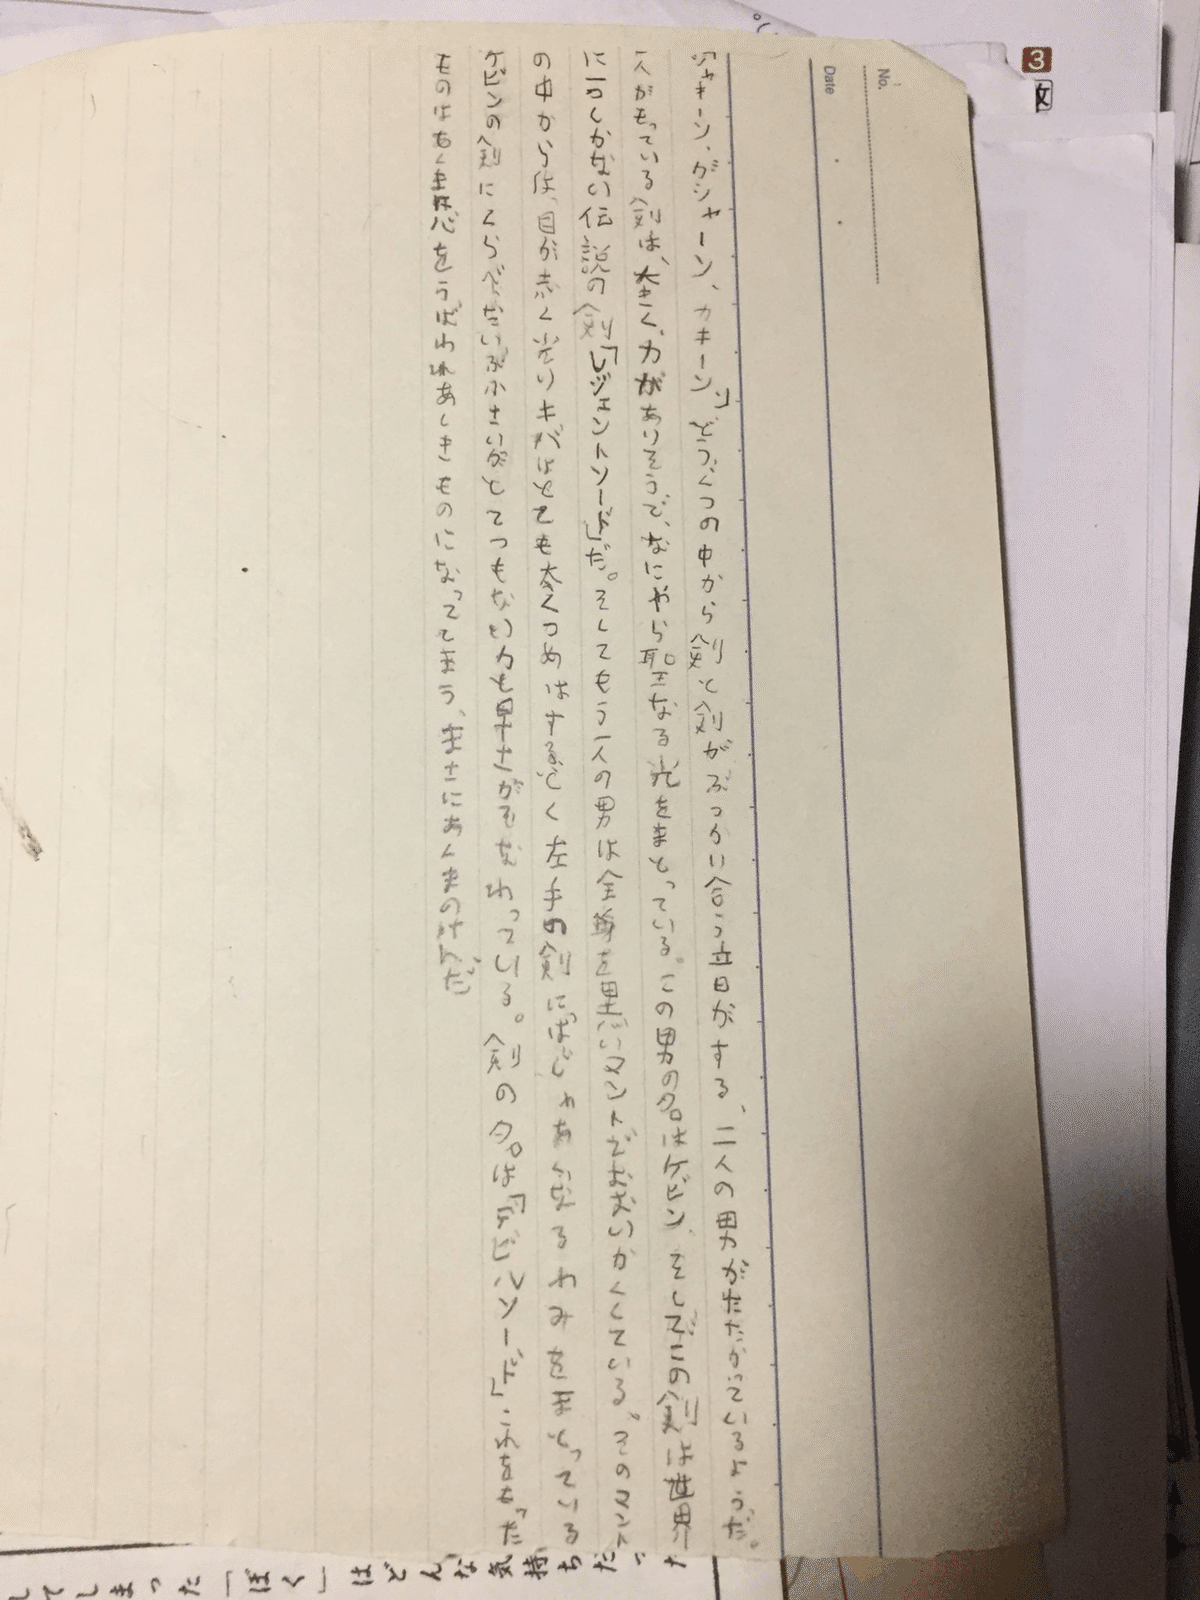 No.
Date
「ジャキーン、ガシャーン、カキーン」どうくつの中から剣と剣がぶつかり合う音がする、二人の男がたたかっているようだ。
一人がもっている剣は、大きく、力がありそうで、なにやら聖なる光をまとっている。この男の名はケビン、そしてこの剣は世界
に一つしかない伝説の剣「レジェントソード」だ。そしてもう一人の男は全身を黒いマントでおおいかくしている。そのマント
の中からは、目が赤く光りキバはとても太くつめはするどく左手の剣にはじゃあくなるわみをまとっている
ケビンの剣にくらべだいぶ小さいがとてつもない力と早さがそなわっている。剣の名は「デビルソード」これをもった
ものはあくまに心をうばわれあしきものになってしまう、まさにあくまのけんだ
3
してしまった「ぼく」はどんな気持ちだった